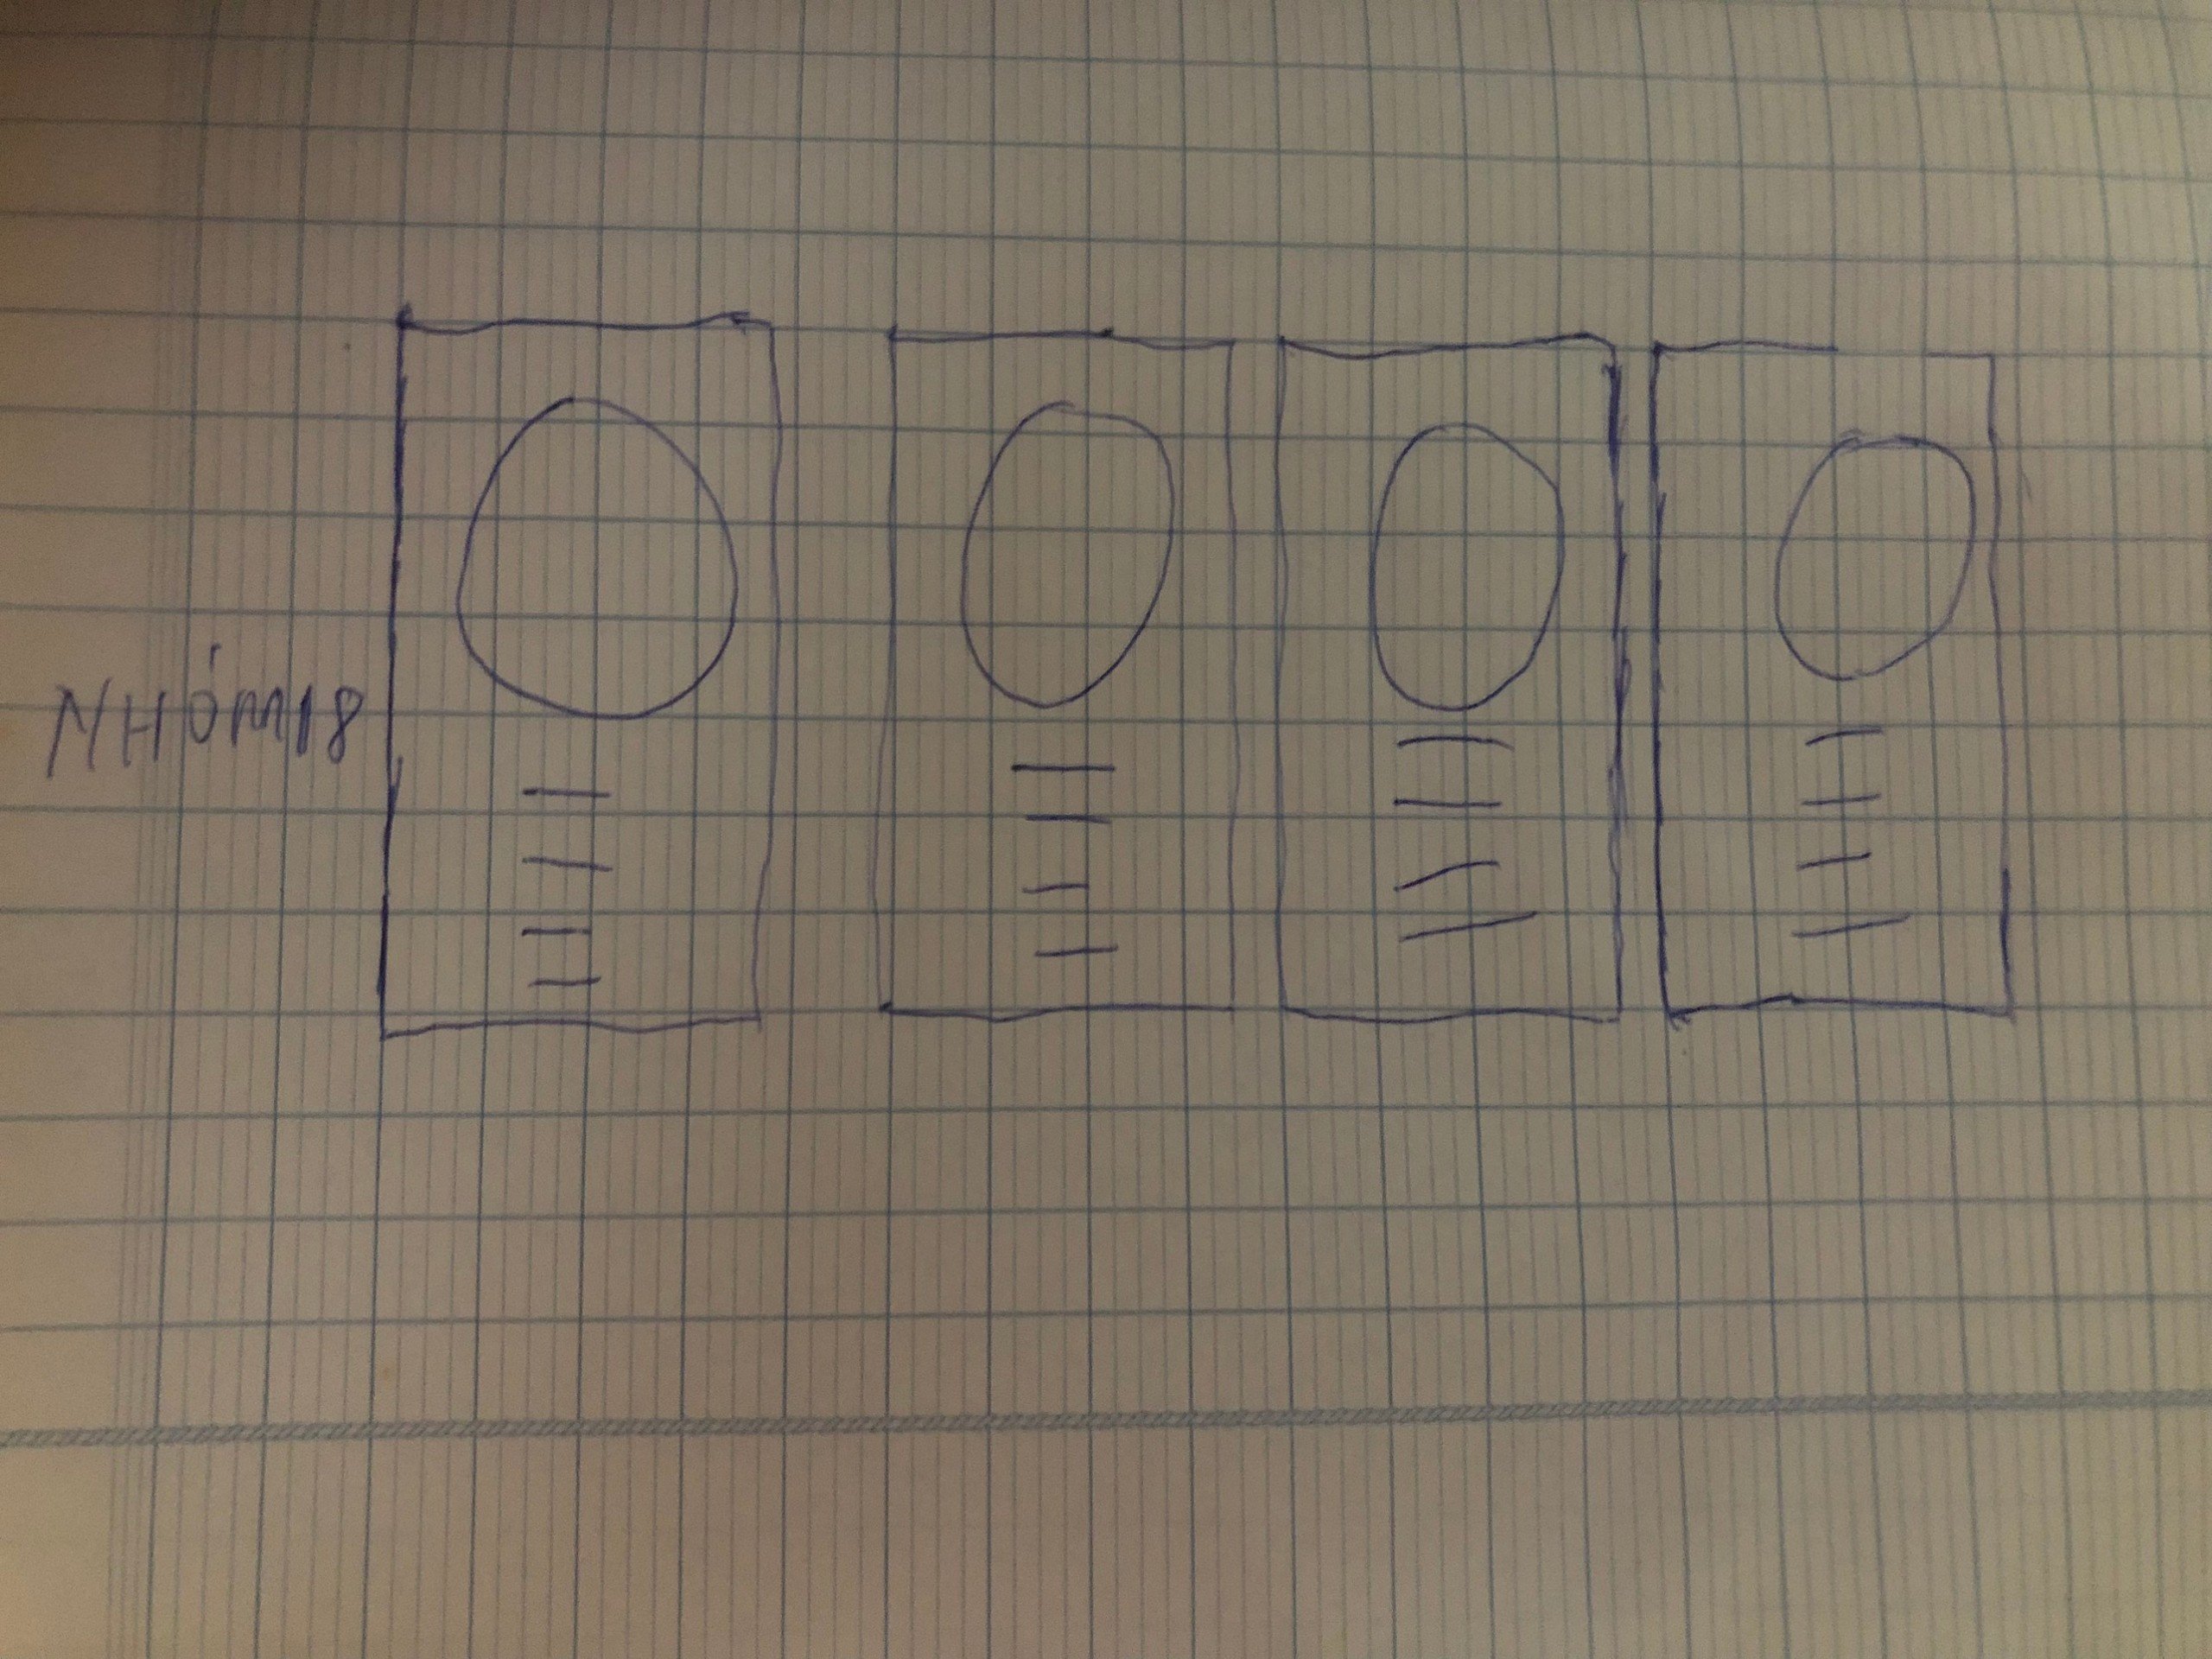 NHÓM18